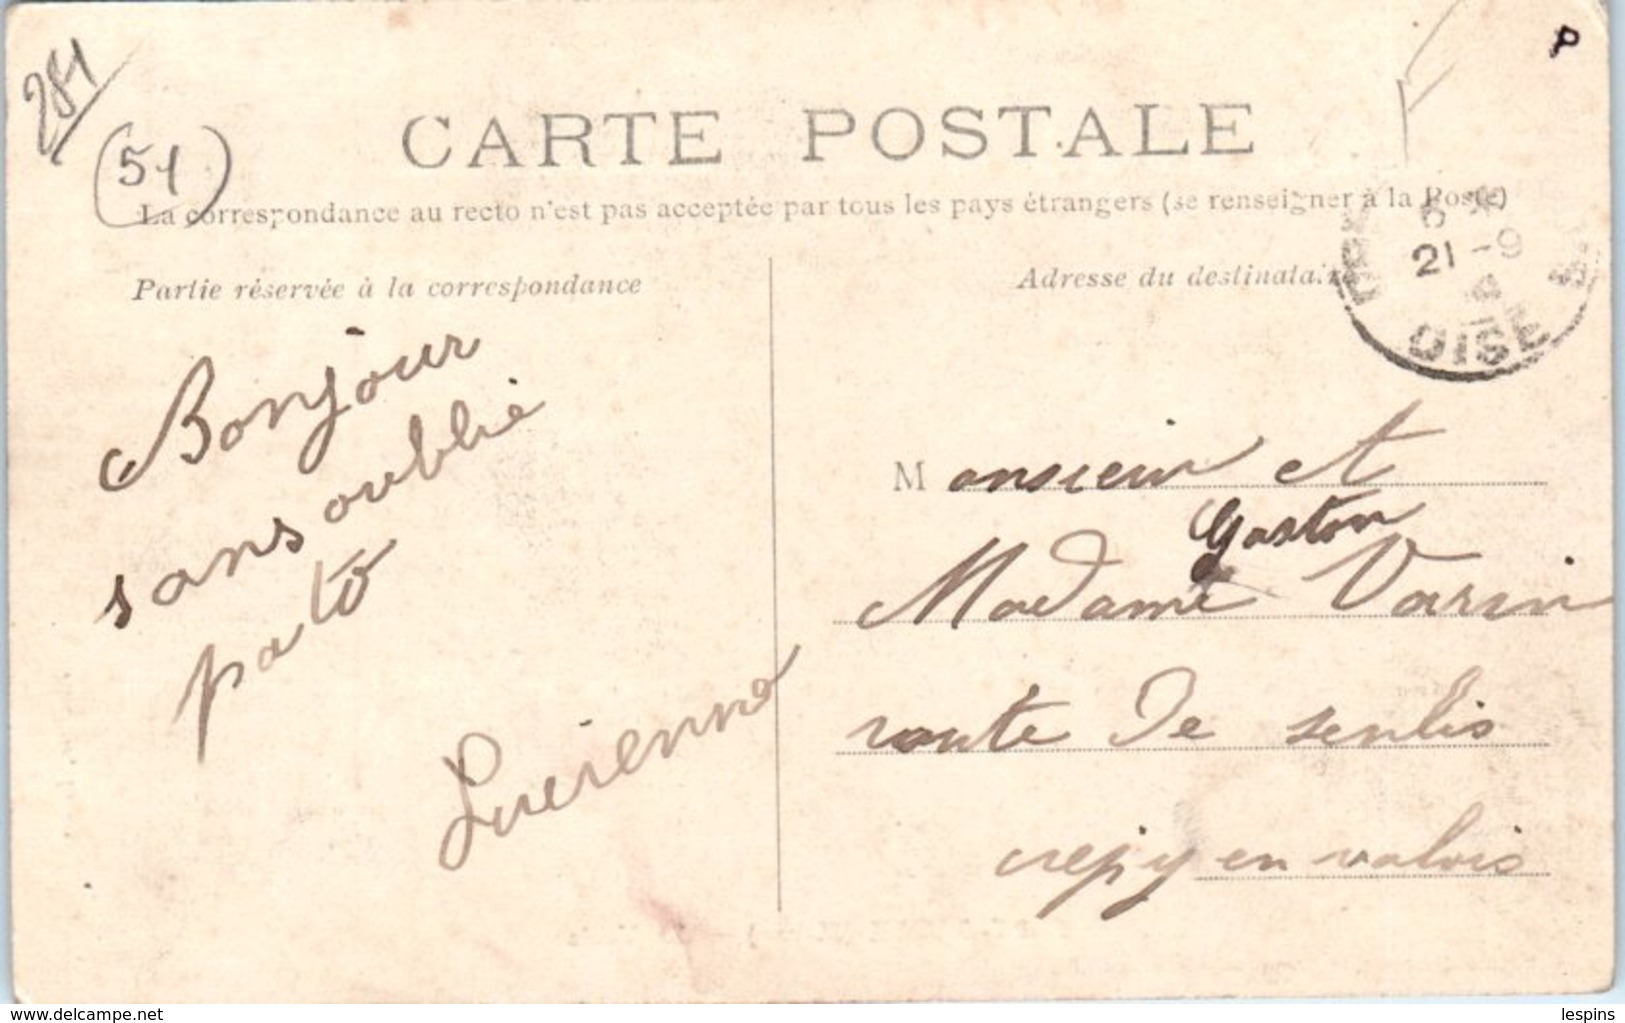 281
(51)
P
CARTE POSTALE
La correspondance au recto n'est pas acceptée par tous les pays étrangers (se renseigner à la Poste)
Partie réservée à la correspondance
Bonjour
sans oublié
pato
Lucienne
Adresse du destinataire
21 - 9
OISE
Monsieur et
Gaston
Madame Varin
route de senlis
crepy en valois
delcampe.net
lespins